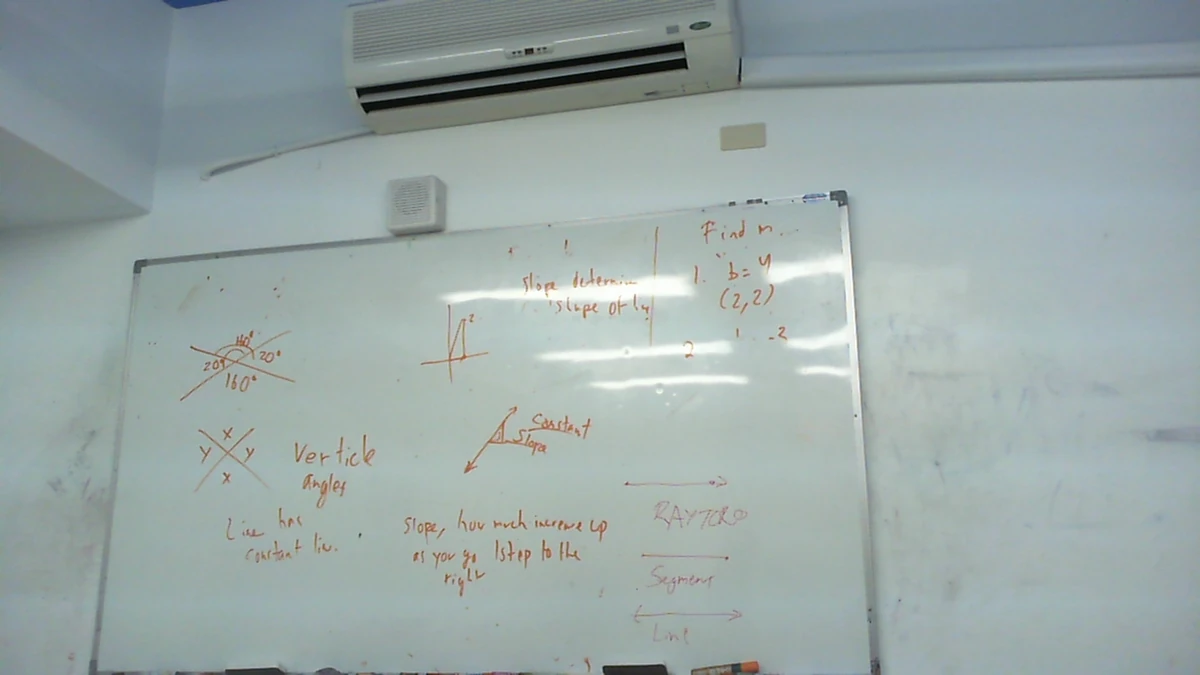 Find m
1. b=4
(2,2)
Slope determin
slope of lin
2
-2
2
110°
20°
20°
160°
x
y y
x
Verticle
angles
Line has
constant lin.
Constant
Slope
Slope, how much increase up
as you go 1 step to the
right
Segment
Line